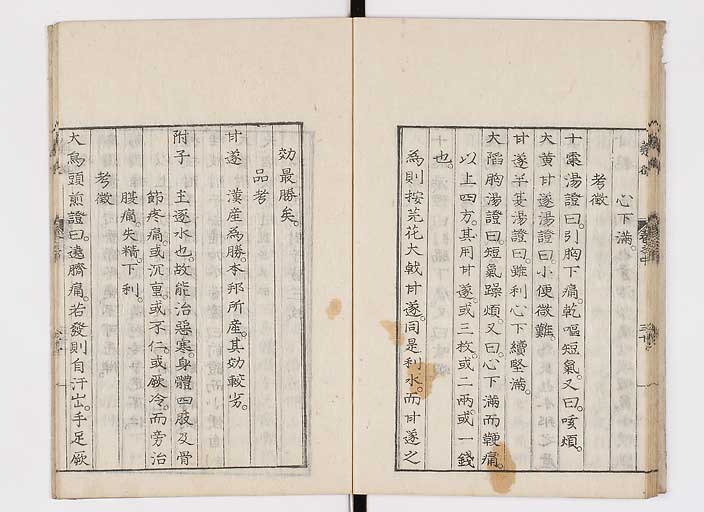 心下滿。
考徵
十棗湯證曰。引胸下痛。乾嘔短氣。又曰。咳煩。
大黃甘遂湯證曰。小便微難。
甘遂半夏湯證曰。雖利心下續堅滿。
大陷胸湯證曰。短氣躁煩。又曰。心下滿而鞕痛。
以上四方。其用甘遂或三枚。或二兩。或一錢
也。
為則按。芫花大戟甘遂。同是利水。而甘遂之
効最勝矣。
品考
甘遂　漢產為勝。本邦所產。其効較劣。
附子　主逐水也。故能治惡寒。身體四肢及骨
節疼痛。或沉重。或不仁。或厥冷。而旁治
腹痛失精。下利。
考徵
大烏頭煎證曰。遶臍痛。若發則自汗出。手足厥